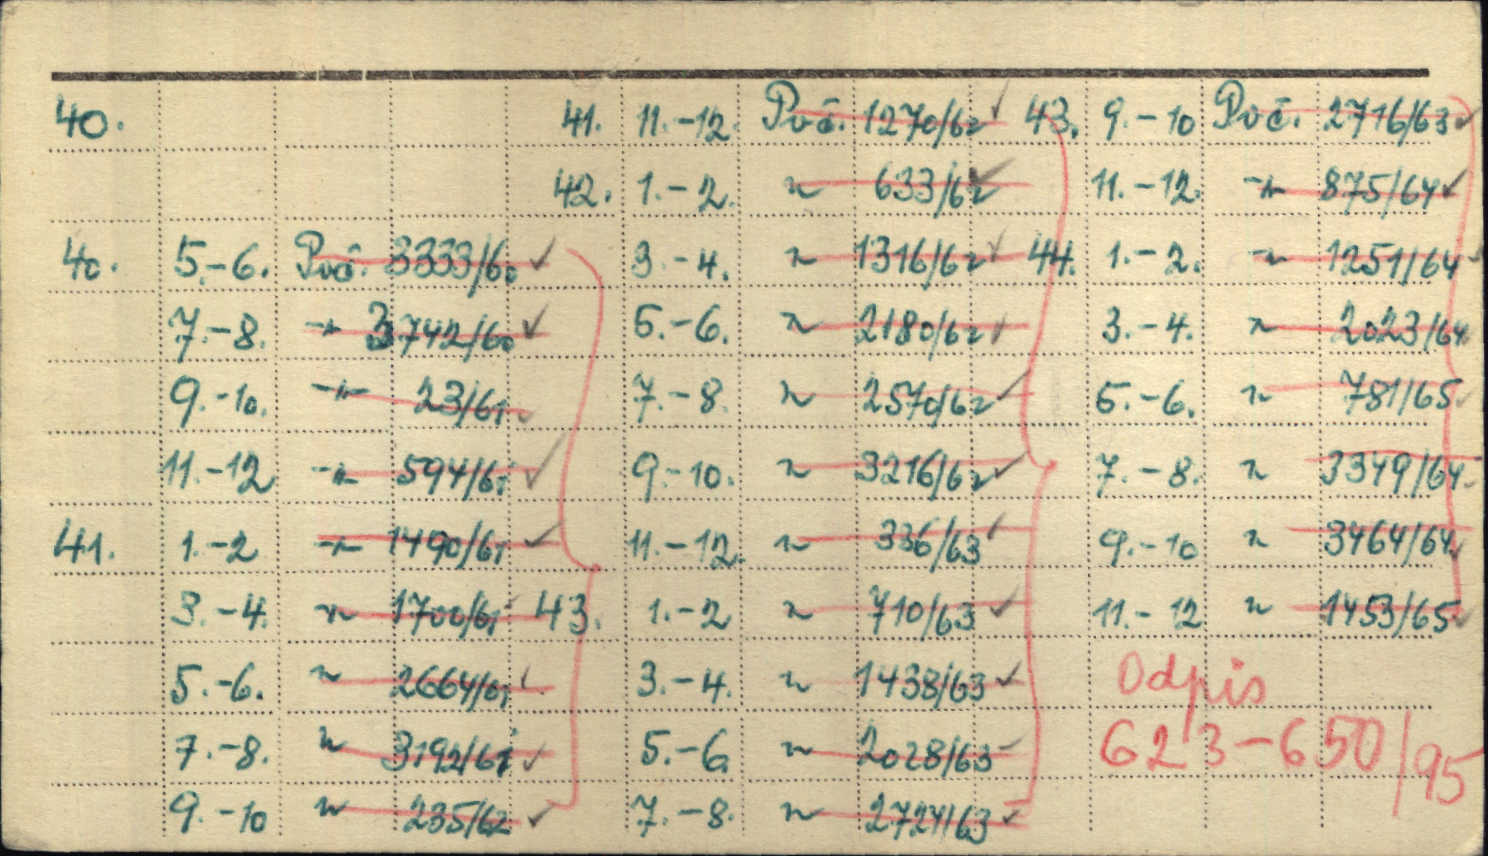 40. 41. 11.-12. Poč. 1270/62 43. 9.-10 Poč. 2716/63
42. 1.-2. " 633/62 11.-12. " 875/64
40. 5.-6. Poč. 3333/60 3.-4. " 1316/62 44. 1.-2. " 1251/64
7.-8. " 3742/60 5.-6. " 2180/62 3.-4. " 2023/64
9.-10. " 23/61 7.-8. " 2570/62 5.-6. " 781/65
11.-12 " 594/61 9.-10. " 3216/62 7.-8. " 3349/64
41. 1.-2 " 1490/61 11.-12. " 336/63 9.-10 " 3464/64
3.-4. " 1700/61 43. 1.-2 " 710/63 11.-12 " 1453/65
5.-6. " 2664/61 3.-4. " 1438/63 Odpis
7.-8. " 3192/61 5.-6. " 2028/63 623-650/95
9.-10 " 235/62 7.-8. " 2724/63